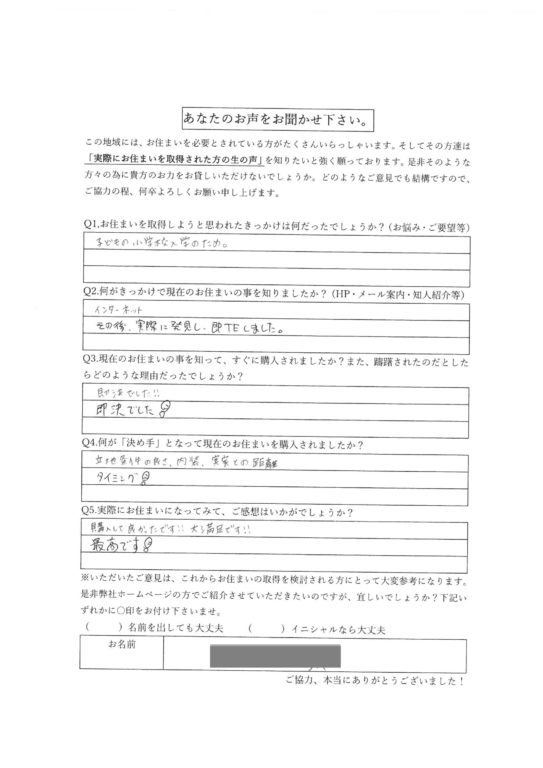 あなたのお声をお聞かせ下さい。
この地域には、お住まいを必要とされている方がたくさんいらっしゃいます。そしてその方達は
「実際にお住まいを取得された方の生の声」を知りたいと強く願っております。是非そのような
方々の為に貴方のお力をお貸しいただけないでしょうか。どのようなご意見でも結構ですので、
ご協力の程、何卒よろしくお願い申し上げます。
Q1,お住まいを取得しようと思われたきっかけは何だったでしょうか？（お悩み・ご要望等）
子どもの小学校入学のため。
Q2.何がきっかけで現在のお住まいの事を知りましたか？（HP・メール案内・知人紹介等）
インターネット
その後、実際に発見し、即TELしました。
Q3.現在のお住まいの事を知って、すぐに購入されましたか？また、躊躇されたのだとした
らどのような理由だったでしょうか？
即決でした!!
即決でした!
Q4.何が「決め手」となって現在のお住まいを購入されましたか？
立地条件の良さ、内装、実家との距離
タイミング!
Q5.実際にお住まいになってみて、ご感想はいかがでしょうか？
購入して良かったです!! 大満足です!!
最高です!
※いただいたご意見は、これからお住まいの取得を検討される方にとって大変参考になります。
是非弊社ホームページの方でご紹介させていただきたいのですが、宜しいでしょうか？下記い
ずれかに〇印をお付け下さいませ。
（　　）名前を出しても大丈夫　（　　）イニシャルなら大丈夫
お名前
ご協力、本当にありがとうございました！